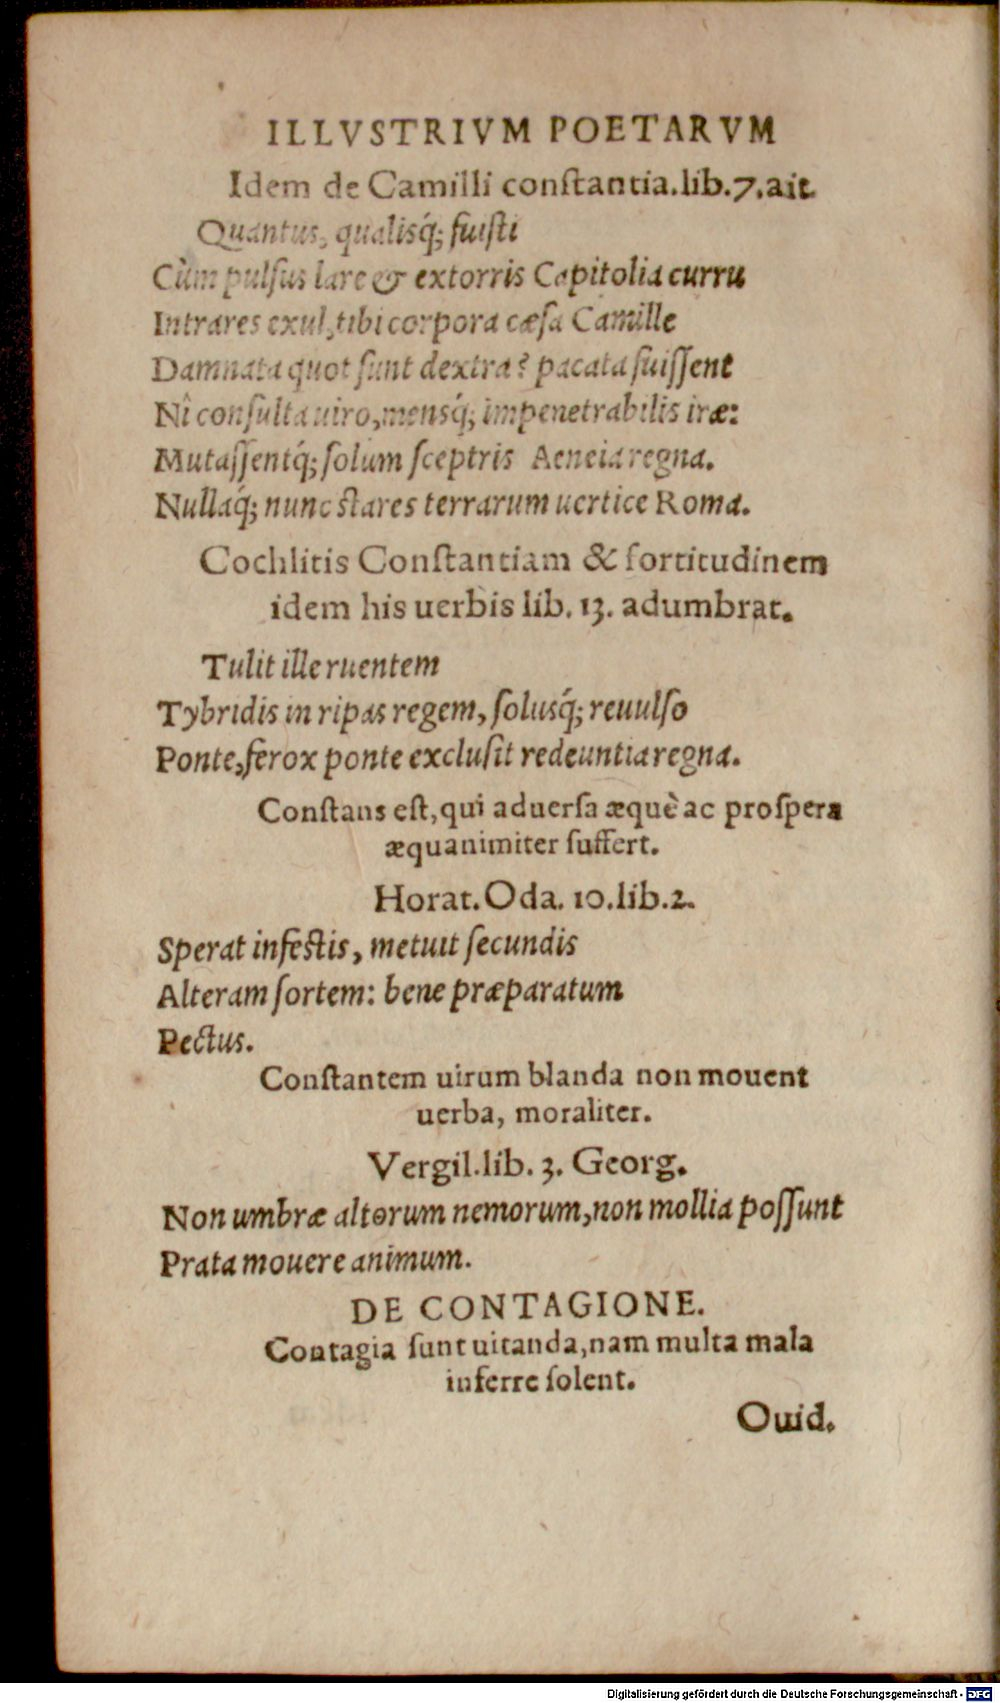 ILLVSTRIVM POETARVM
Idem de Camilli conſtantia.lib.7.ait.
Quantus, qualisq́; fuiſti
Cùm pulſus lare & extorris Capitolia curru
Intrares exul, tibi corpora cæſa Camille
Damnata quot ſunt dextra? pacata fuiſſent
Nî conſulta uiro, mensq́; impenetrabilis iræ:
Mutaſſentq́; ſolum ſceptris Aeneia regna.
Nullaq́; nunc ſtares terrarum uertice Roma.
Cochlitis Conſtantiam & fortitudinem
idem his uerbis lib. 13. adumbrat.
Tulit ille ruentem
Tybridis in ripas regem, ſolusq́; reuulſo
Ponte, ferox ponte excluſit redeuntia regna.
Conſtans eſt, qui aduerſa æquè ac proſpera
æquanimiter ſuffert.
Horat. Oda. 10. lib. 2.
Sperat infeſtis, metuit ſecundis
Alteram ſortem: bene præparatum
Pectus.
Conſtantem uirum blanda non mouent
uerba, moraliter.
Vergil. lib. 3. Georg.
Non umbræ altorum nemorum, non mollia poſſunt
Prata mouere animum.
DE CONTAGIONE.
Contagia ſunt uitanda, nam multa mala
inferre ſolent.
Ouid.
Digitalisierung gefördert durch die Deutsche Forschungsgemeinschaft - DFG